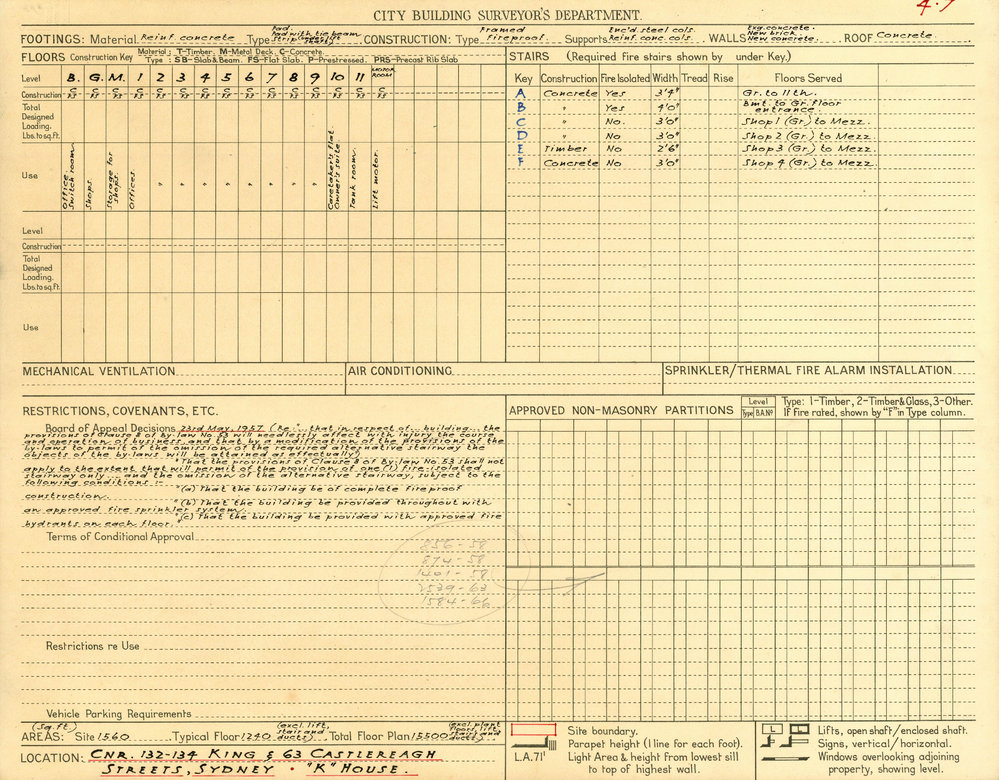 4.9
CITY BUILDING SURVEYOR'S DEPARTMENT.
FOOTINGS: Material Reinf. concrete Type Pad Pad with tie beam Strip CONSTRUCTION: Type Framed fireproof. Supports Enc'd. steel cols. Reinf. conc. cols. WALLS Exg. concrete. New brick. New concrete. ROOF Concrete.
FLOORS Construction Key Material: T-Timber. M-Metal Deck. C-Concrete.
Type: SB-Slab & Beam. FS-Flat Slab. P-Prestressed. PRS-Precast Rib Slab
Level B. G. M. 1 2 3 4 5 6 7 8 9 10 11 MOTOR ROOM
Construction C FS C FS C FS C FS C FS C FS C FS C FS C FS C FS C FS C FS C FS C FS C FS
Total Designed Loading. Lbs. to sq. ft.
Use Office. Switch room. Shops. Storage for shops. Offices. " " " " " " " " Caretaker's flat Owner's suite. Tank room. Lift motor.
Level
Construction
Total Designed Loading. Lbs. to sq. ft.
Use
STAIRS (Required fire stairs shown by under Key.)
Key Construction Fire Isolated Width Tread Rise Floors Served
A Concrete Yes 3'4" Gr. to 11th.
B " Yes 4'0" Bmt. to Gr. floor entrance.
C " No. 3'0" Shop 1 (Gr.) to Mezz.
D " No. 3'0" Shop 2 (Gr.) to Mezz.
E Timber No 2'6" Shop 3 (Gr.) to Mezz.
F Concrete No 3'0" Shop 4 (Gr.) to Mezz.
MECHANICAL VENTILATION AIR CONDITIONING. SPRINKLER/THERMAL FIRE ALARM INSTALLATION
RESTRICTIONS, COVENANTS, ETC.
Board of Appeal Decisions 23rd May, 1957 (Re "...that in respect of...building...the
provisions of Clause 8 of By-law No. 53 will needlessly affect with injury the course
and operation of business and that by a modification of the provisions of the
by-laws to permit of the omission of the required alternative stairway the
objects of the by-laws will be attained as effectually")
"That the provisions of Clause 8 of By-law No. 53 shall not
apply to the extent that will permit of the provision of one (1) fire-isolated
stairway only... and the omission of the alternative stairway, subject to the
following conditions :-
"(a) That the building be of complete fireproof
construction.
"(b) That the building be provided throughout with
an approved fire sprinkler system.
"(c) That the building be provided with approved fire
hydrants on each floor."
Terms of Conditional Approval
856-58
874-58
1401-58
2539-63
1584-66
Restrictions re Use
Vehicle Parking Requirements
APPROVED NON-MASONRY PARTITIONS Level Type B.A.No Type: 1-Timber, 2-Timber & Glass, 3-Other.
If Fire rated, shown by "F" in Type column.
(Sq. ft.) (excl. lift, stair and ducts) (excl. plant rooms, lifts, stairs and ducts)
AREAS: Site 1560 Typical Floor 1240 Total Floor Plan 15500
LOCATION: CNR. 132-134 KING & 63 CASTLEREAGH
STREETS, SYDNEY. "K" HOUSE.
Site boundary.
Parapet height (1 line for each foot).
L.A.71' Light Area & height from lowest sill
to top of highest wall.
L L Lifts, open shaft/enclosed shaft.
Signs, vertical/horizontal.
Windows overlooking adjoining
property, showing level.